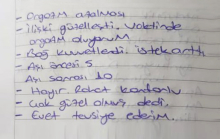 - Orgazm azalması
- İlişki güzelleşti. Vaktinde
orgazm oluyorum
- Bağ kuvvetlendi. istek arttı
- Aşı öncesi 5
Aşı sonrası 10
- Hayır Rahat
- Çok güzel olmuş dedi.
- Evet tavsiye ederim.